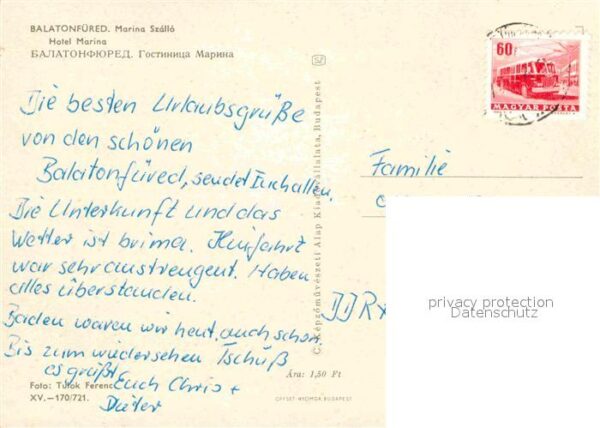 BALATONFÜRED. Marina Szálló
Hotel Marina
БАЛАТОНФЮРЕД. Гостиница Марина
Die besten Urlaubsgrüße
von den schönen
Balatonfüred, sendet Euch allen.
Die Unterkunft und das
Wetter ist prima. Hinfahrt
war sehr anstrengent. Haben
alles überstanden.
Baden waren wir heut, auch schon.
Bis zum wiedersehen Tschüß
es grüßt Euch Chris +
Dieter
Foto: Tulok Ferenc
XV.—170/721.
C. Képzőművészeti Alap Kiadóvállalata, Budapest
Ára: 1,50 Ft
OFFSET-NYOMDA BUDAPEST
60f
MAGYAR POSTA
Familie
DDR
privacy protection
Datenschutz